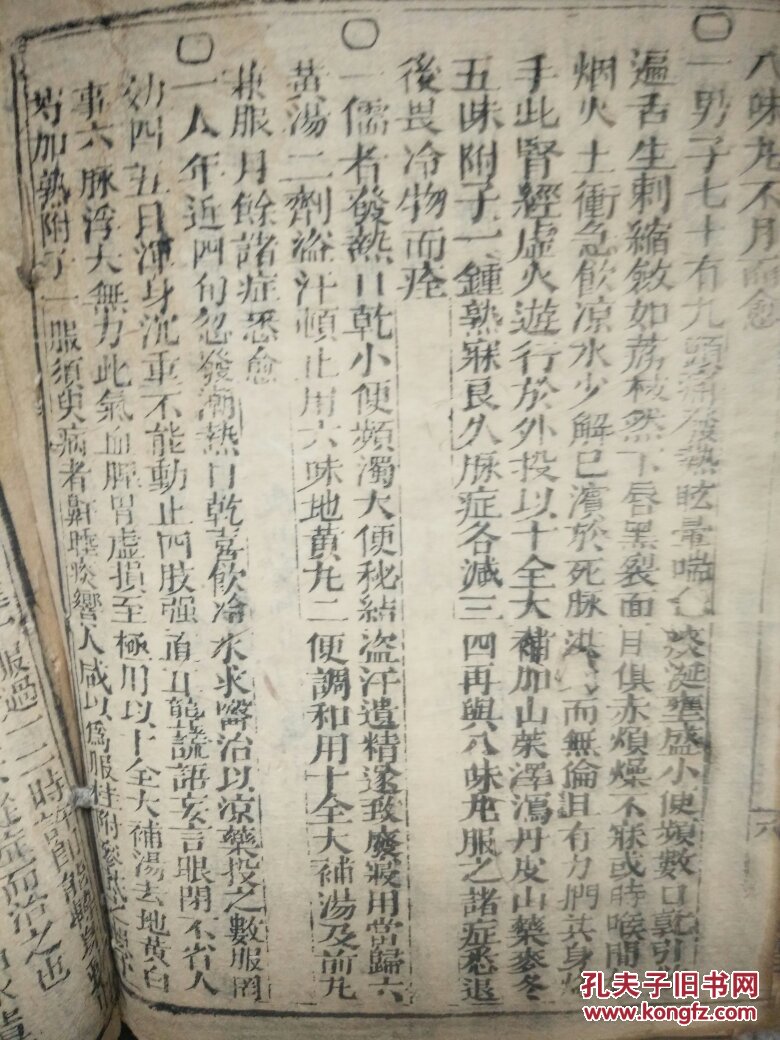 八味丸不月而愈
○一男子七十有九頭痛發熱眩暈喘 痰涎壅盛小便頻數口乾引
遍舌生刺縮斂如荔枝然下唇黑裂面目俱赤煩燥不寐或時喉間
烟火上衝急飲凉水少解已濱於死脉洪 而無倫且有力捫其身
手此腎經虛火遊行於外投以十全大補加山茱澤瀉丹皮山藥麥冬
五味附子一鍾熟寐良久脉症各減三四再與八味丸服之諸症悉退
後畏冷物而痊
○一儒者發熱口乾小便頻濁大便秘結盜汗遺精遂致廢寢用當歸六
黃湯二劑盜汗頓止用六味地黃丸二便調和用十全大補湯及前丸
兼服月餘諸症悉愈
○一人年近四旬忽發潮熱口乾喜飲冷水求醫治以涼藥投之數服罔
効四五日渾身沉重不能動止四肢强直耳聾譫語妄言眼閉不省人
事六脉浮大無力此氣血脾胃虛損至極用以十全大補湯去地黃白
芍加熟附子一服須臾病者鼾睡痰響人咸以爲服桂附參
服過一二時
症而治之也
孔夫子旧书网
kongfz.com
六